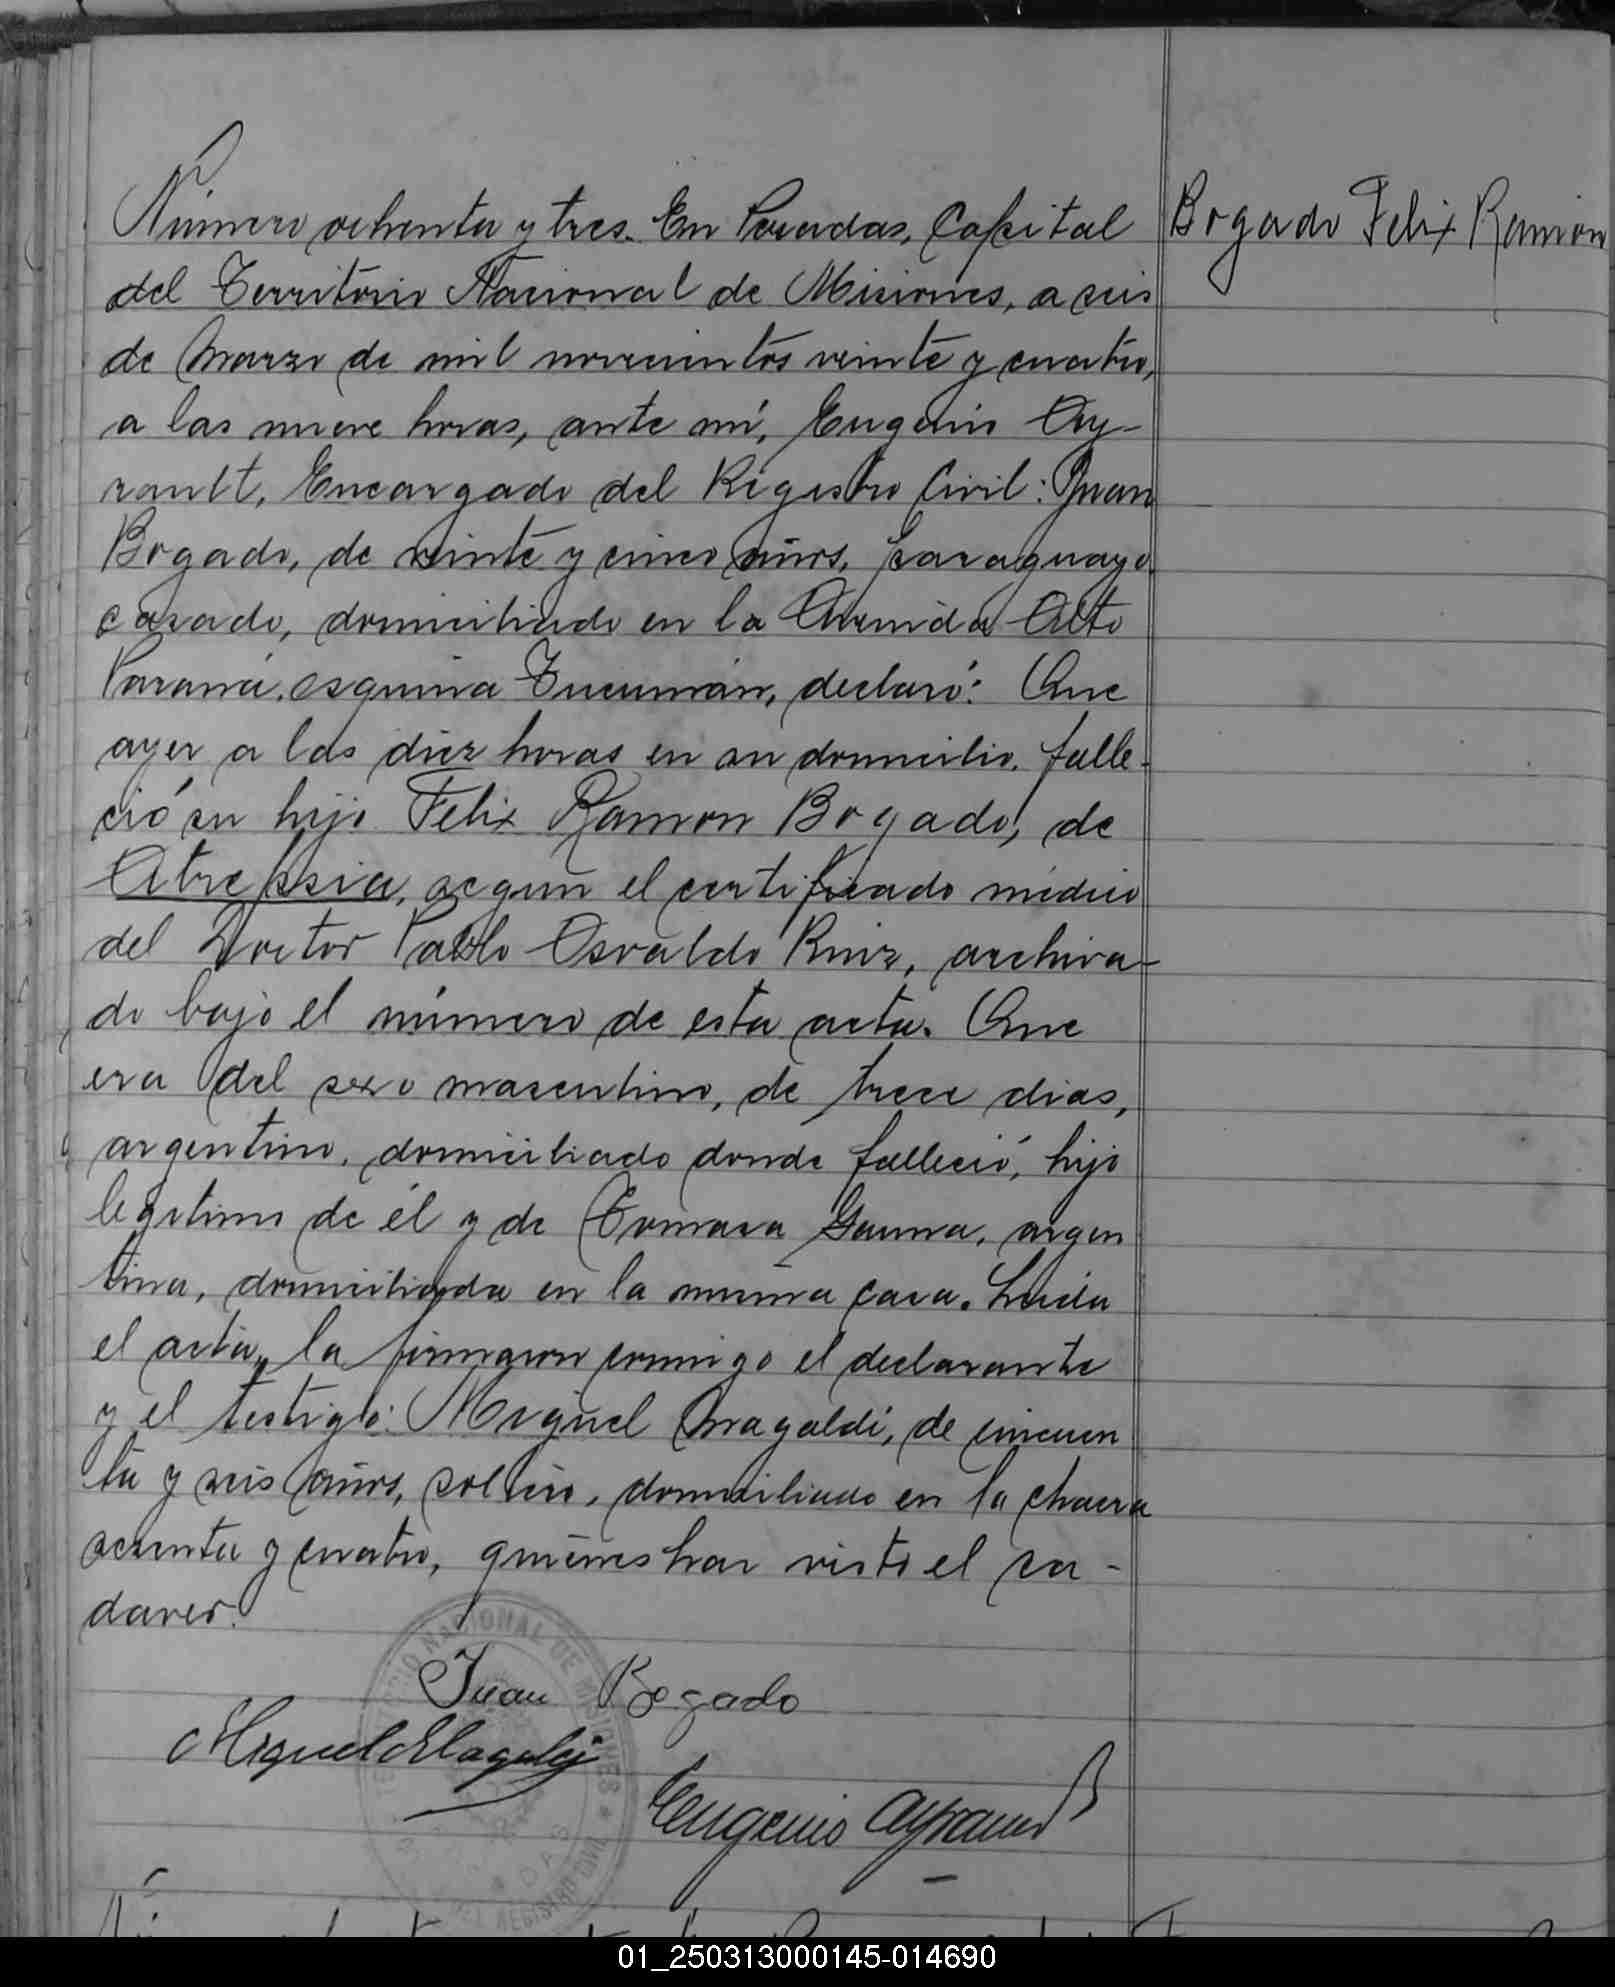 Número ochenta y tres. En Posadas, Capital
Bogado Felix Ramon
del Territorio Nacional de Misiones, a seis
de Marzo de mil novecientos veinte y cuatro,
a las nueve horas, ante mí, Eugenio Ay-
rault, Encargado del Registro Civil: Juan
Bogado, de veinte y cinco años, paraguayo
casado, domiciliado en la Avenida Alto
Paraná, esquina Tucumán, declaró: Que
ayer a las diez horas en su domicilio, falle-
ció su hijo Felix Ramon Bogado, de
Atrepsia, segun el certificado médico
del Doctor Pablo Osvaldo Ruiz, archiva-
do bajo el número de esta acta. Que
era del sexo masculino, de trece dias,
argentino, domiciliado donde falleció, hijo
legitimo de él y de Tomasa Gauna, argen
tina, domiciliada en la misma casa. Leida
el acta, la firmaron conmigo el declarante
y el testigo: Miguel Magaldi, de cincuen
ta y seis años, soltero, domiciliado en la chacra
sesenta y cuatro, quienes han visto el ca-
daver.
Juan Bogado
Miguel Magaldi
Eugenio Ayrault
TERRITORIO NACIONAL DE MISIONES
REGISTRO CIVIL
01_250313000145-014690